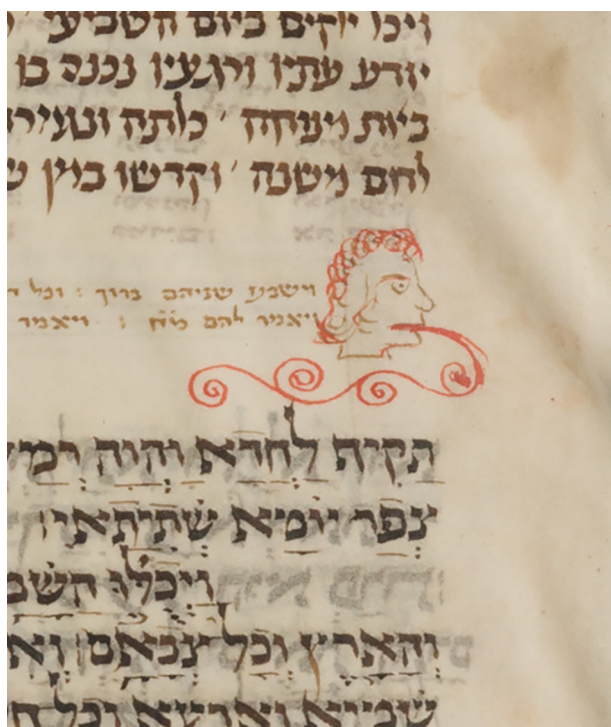 ויכל אלקים ביום השביעי '
יודע עתיו ורגעיו נכנס בו
באת מנוחה ' כלתה ונגמרה
לחם משנה ' וקדשו במן ש
שניהם ברוך : וכל
ויאמר להם : ויאמר
תקין לחדא והוה רמש
צפר יומא שתיתאי
ויכלו השמ
והארץ וכל צבאם וא
שמיא וארעא וכל ח